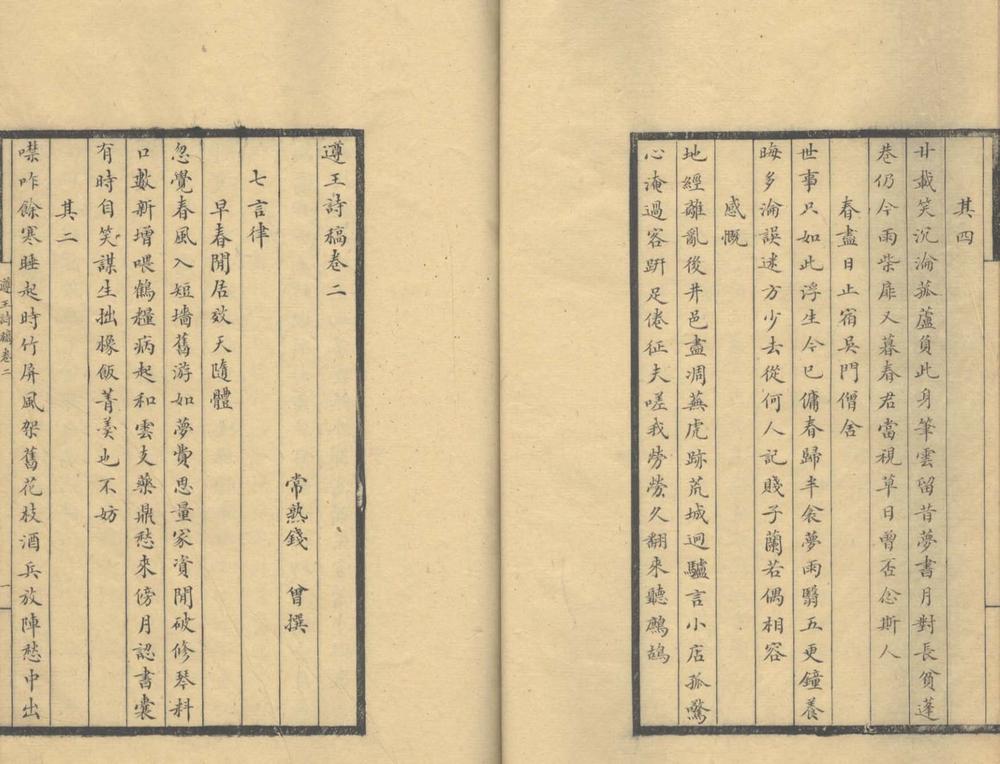 其四
廿載笑沉淪菰蘆負此身筆雲留昔夢書月對長貧蓬
巷仍今雨柴扉又暮春君當視草日曾否念斯人
春盡日止宿吳門僧舍
世事只如此浮生今已傭春歸半衾夢雨翳五更鐘養
晦多淪誤迷方少去從何人記賤子蘭若偶相容
感慨
地經離亂後井邑盡凋蕪虎跡荒城迥驢言小店孤驚
心淹過客趼足倦征夫嗟我勞勞久翻來聽鷓鴣
遵王詩稿卷二
常熟錢 曾撰
七言律
早春閒居效天隨體
忽覺春風入短墻舊游如夢費思量家資閒破修琴料
口數新增喂鶴糧病起和雲支藥鼎愁來傍月認書囊
有時自笑謀生拙橡飯菁羹也不妨
其二
噤咋餘寒睡起時竹屏風架舊花枝酒兵放陣愁中出
遵王詩稿卷二
一